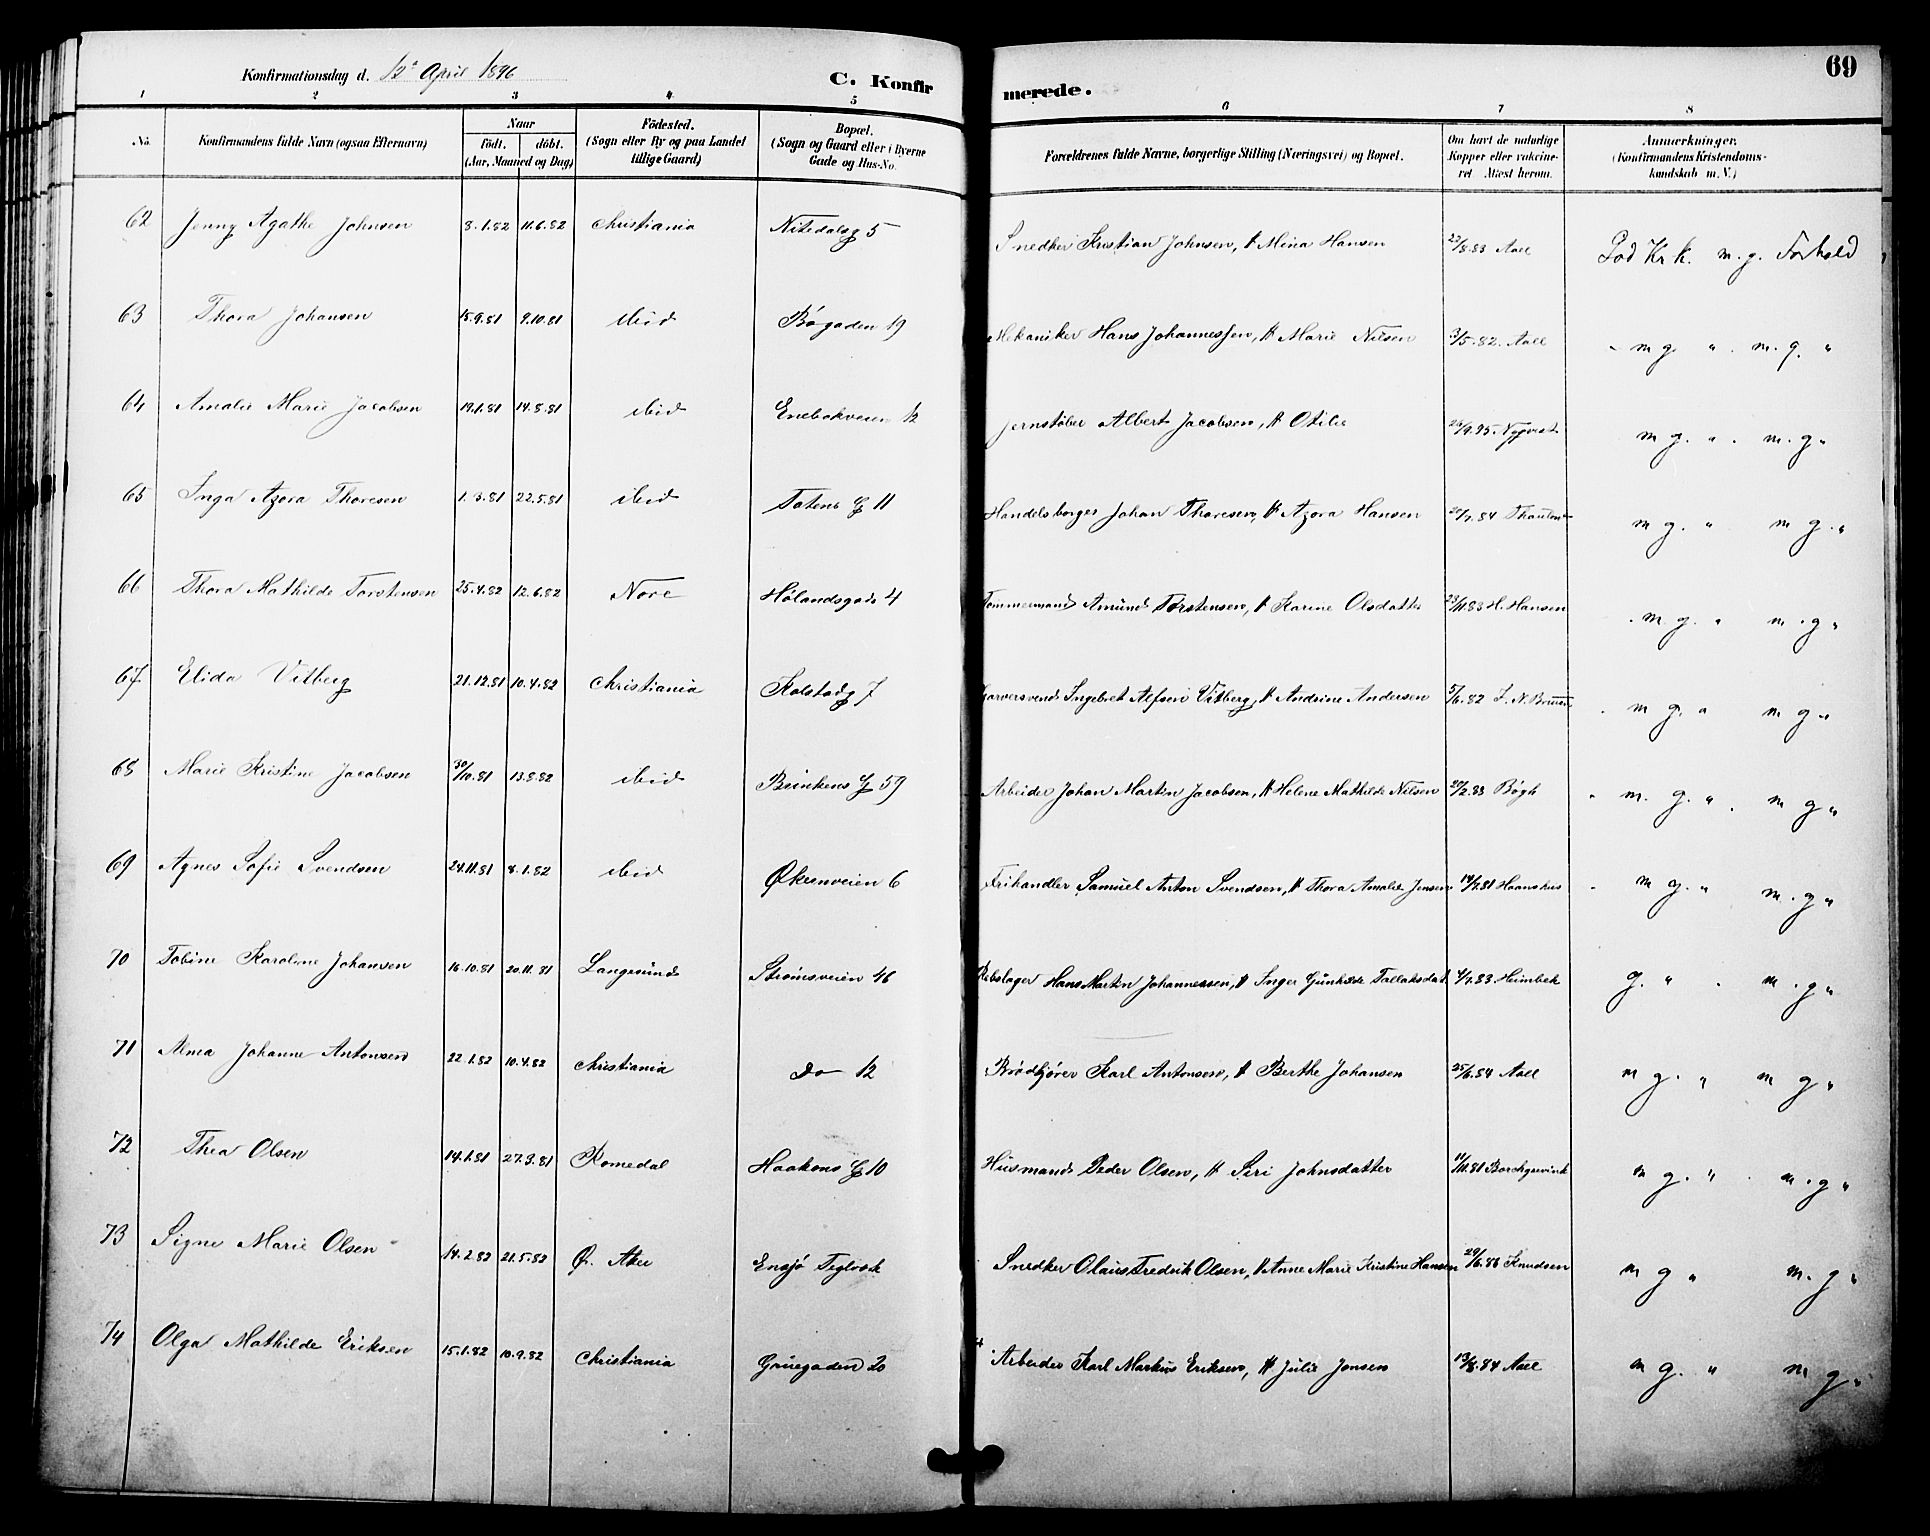 69
Konfirmationsdag d. 12te April 1896
C. Konfirmerede.
1 2 3 4 5 6 7 8
No. Konfirmandens fulde Navn (ogsaa Efternavn) Naar født. døbt. (Aar, Maaned og Dag) Fødested. (Sogn eller By og paa Landet tillige Gaard) Bopæl. (Sogn og Gaard eller i Byerne Gade og Hus-No. Forældrenes fulde Navne, borgerlige Stilling (Næringsvei) og Bopæl. Om havt de naturlige Kopper eller vakcineret Atæst herom. Anmærkninger. (Konfirmandens Kristendomskundskab m. V.)
62 Jenny Agathe Johnsen 8.1.82 11.6.82 Christiania Nitedalsg 5 Snedker Kristian Johnsen, & Mina Hansen 22/8.83 Aall God Kr k. m. g. Forhold
63 Thora Johansen 15.9.81 9.10.81 ibid Bøgaden 19 Mekaniker Hans Johannessen, & Marie Nilsen 3/5.82. Aall m g. " m. g. "
64 Amalie Marie Jacobsen 19.1.81 14.8.81 ibid Enebakveien 12 Jernstøber Albert Jacobsen, & Otilie m g. " m. g "
65 Inga Azora Thoresen 1.3.81 22.5.81 ibid Totens G 11 Handelsborger Johan Thoresen, & Azora Hansen m g. " m g. "
66 Thora Mathilde Torstensen 25.4.82 12.6.82 Nore Hølandsgade 4 Tømmermand Amund Torstensen, & Karine Olsdatter 23/11.83 H. Hansen m. g. " m. g "
67 Elida Vitberg 21.12.81 10.4.82 Christiania Kolstadg 7 Garversvend Ingebret Alfsen Vitberg, & Andrine Andersen 5/6.82 m g. " m g "
68 Marie Kristine Jacobsen 30/10.81 13.8.82 ibid Brinkens G 59 Arbeider Johan Martin Jacobsen, & Helene Mathilde Nilsen 20/2.83 Bøgh " m. g. " m g "
69 Agnes Sofie Svendsen 24.11.81 8.1.82 ibid Økernveien 6 Frihandler Samuel Anton Svendsen, & Thora Amalie Jensen 14/7.81 Haanshus " m g. " m. g "
70 Tobine Karoline Johansen 16.10.81 20.11.81 Langesund Strømsveien 46 Rebslager Hans Martin Johannessen, & Inger Gunhilde Tallaksdat. 4/7.83 Heimbek g. " m. g "
71 Alma Johanne Antonsen 22.1.82 10.4.82 Christiania do 12 Brødkjører Karl Antonsen, & Berthe Johansen 25/6.84 Aall m g. " m g "
72 Thea Olsen 14.1.81 27.3.81 Romedal Haakons G 10 Husmand Peder Olsen, & Siri Johnsdatter 11/11.81 Borchgrevink m g. " m. g "
73 Signe Marie Olsen 14.2.82 21.5.82 Ø. Aker Ensjø Teglverk Snedker Olaus Fredrik Olsen, & Anne Marie Kristine Hansen 29/6.86 Knudsen m g " m. g "
74 Olga Mathilde Eriksen 15.1.82 10.9.82 Christiania Grüegaden 20 Arbeider Karl Markus Eriksen, & Julie Jonsen 13/8.84 Aall m g. " m g "